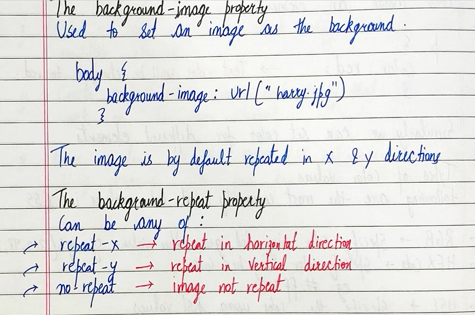 The background-image property
Used to set an image as the background.
body {
background-image: url("harry.jpg")
}
The image is by default repeated in x & y directions
The background-repeat property
Can be any of :
→ repeat-x → repeat in horizontal direction
→ repeat-y → repeat in vertical direction
→ no-repeat → image not repeat